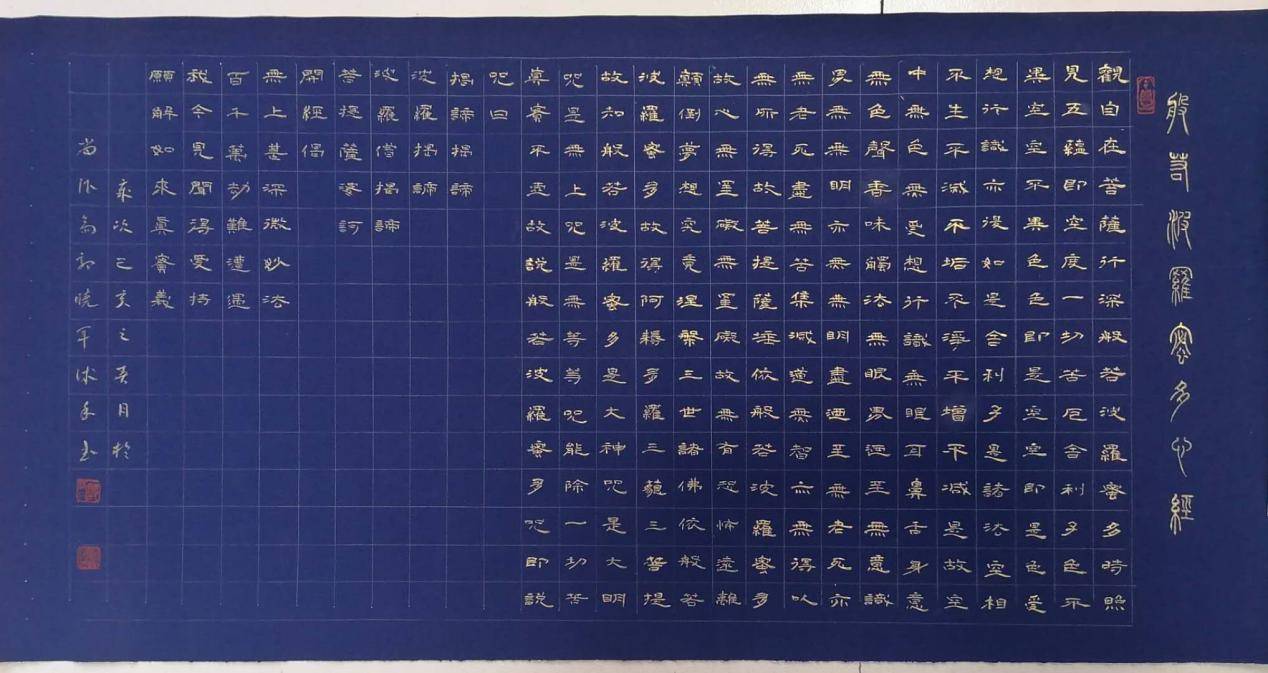 般若波羅蜜多心經
觀自在菩薩行深般若波羅蜜多時照
見五蘊即空度一切苦厄舍利子色不
異空空不異色色即是空空即是色受
想行識亦復如是舍利子是諸法空相
不生不滅不垢不淨不增不減是故空
中無色無受想行識無眼耳鼻舌身意
無色聲香味觸法無眼界迺至無意識
界無無明亦無無明盡迺至無老死亦
無老死盡無苦集滅道無智亦無得以
無所得故菩提薩埵依般若波羅蜜多
故心無罣礙無罣礙故無有恐怖遠離
顛倒夢想究竟涅槃三世諸佛依般若
波羅蜜多故得阿耨多羅三藐三菩提
故知般若波羅蜜多是大神咒是大明
咒是無上咒是無等等咒能除一切苦
真實不虛故說般若波羅蜜多咒即說
咒曰
揭諦揭諦
波羅揭諦
波羅僧揭諦
菩提薩婆訶
開經偈
無上甚深微妙法
百千萬劫難遭遇
我今見聞得受持
願解如來真實義
歲次己亥之月於
郭曉軍沐手書